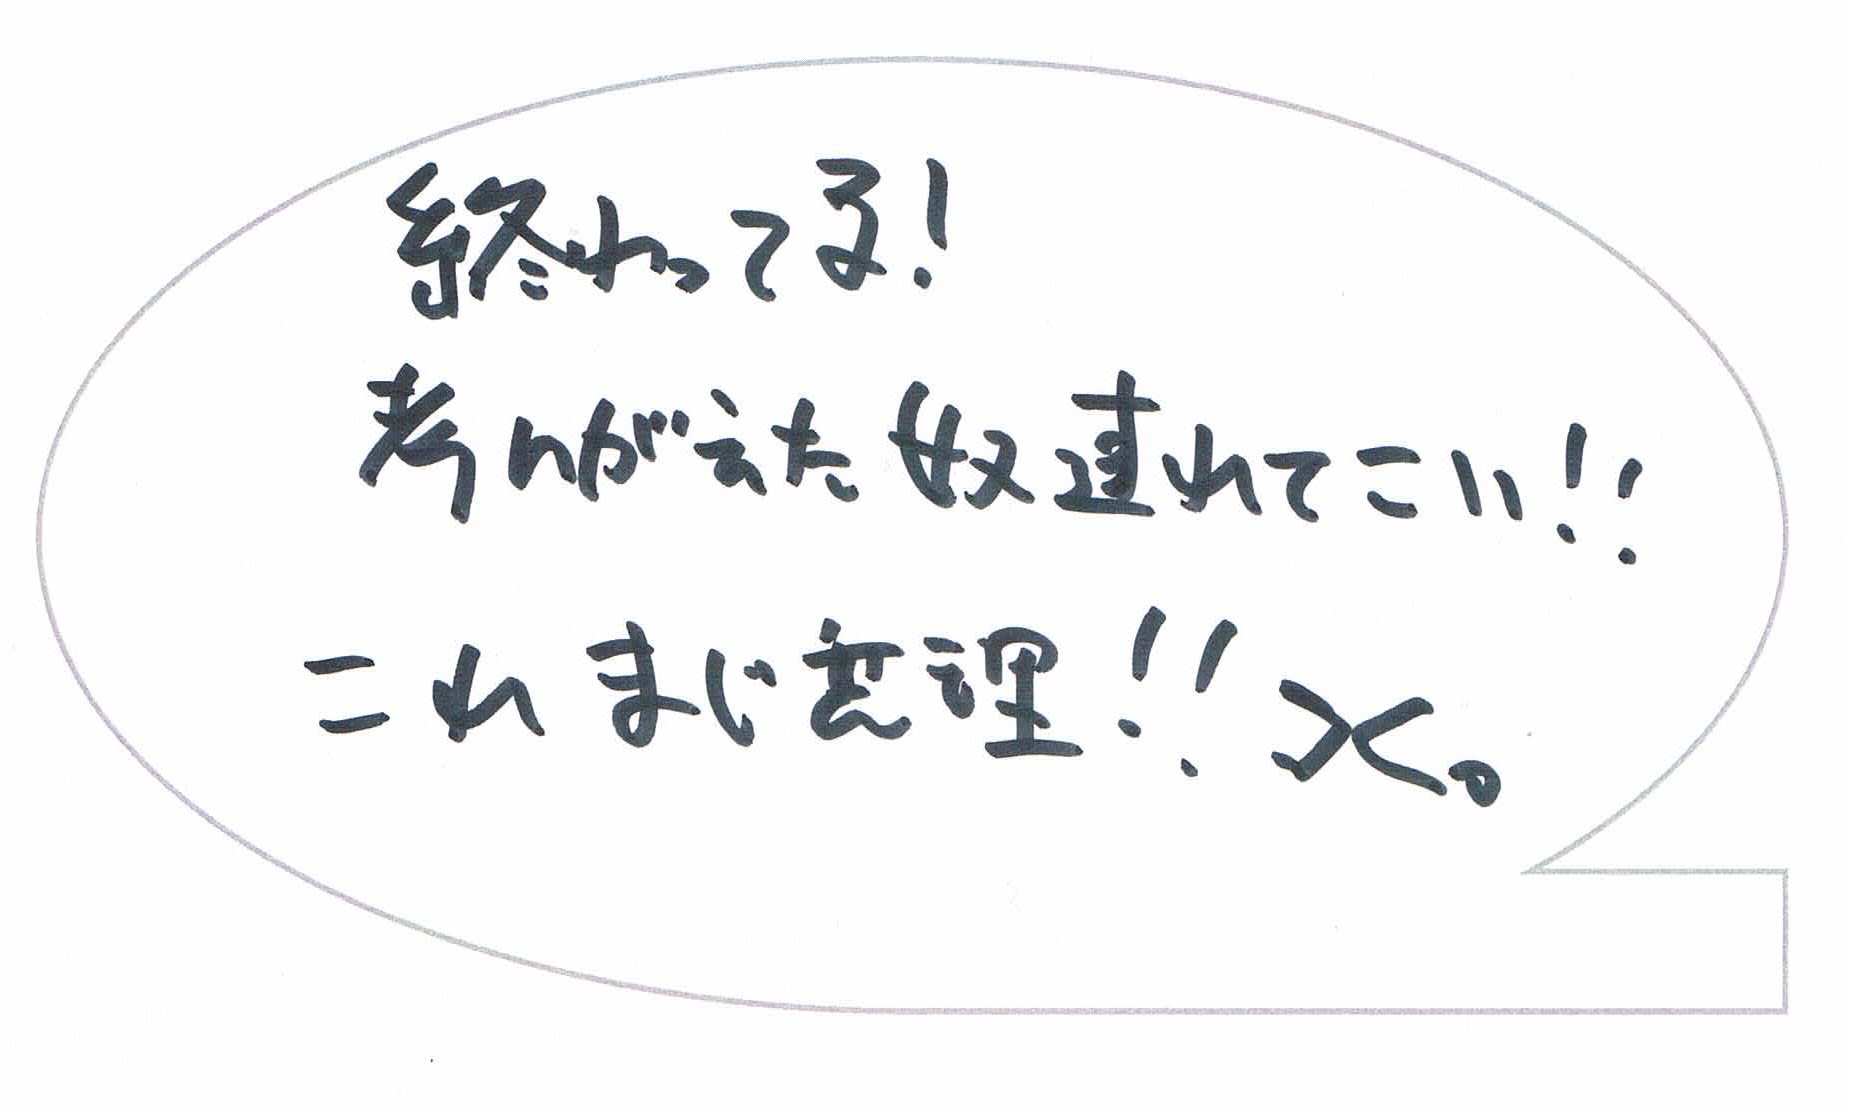 終わってる!
考んがえた奴連れてこい!!
これまじ無理!!×。